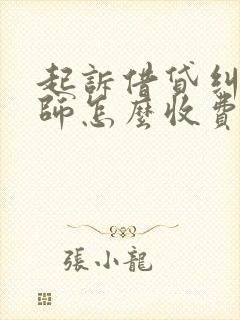 起訴借貸糾
師怎麼收費
張小龍